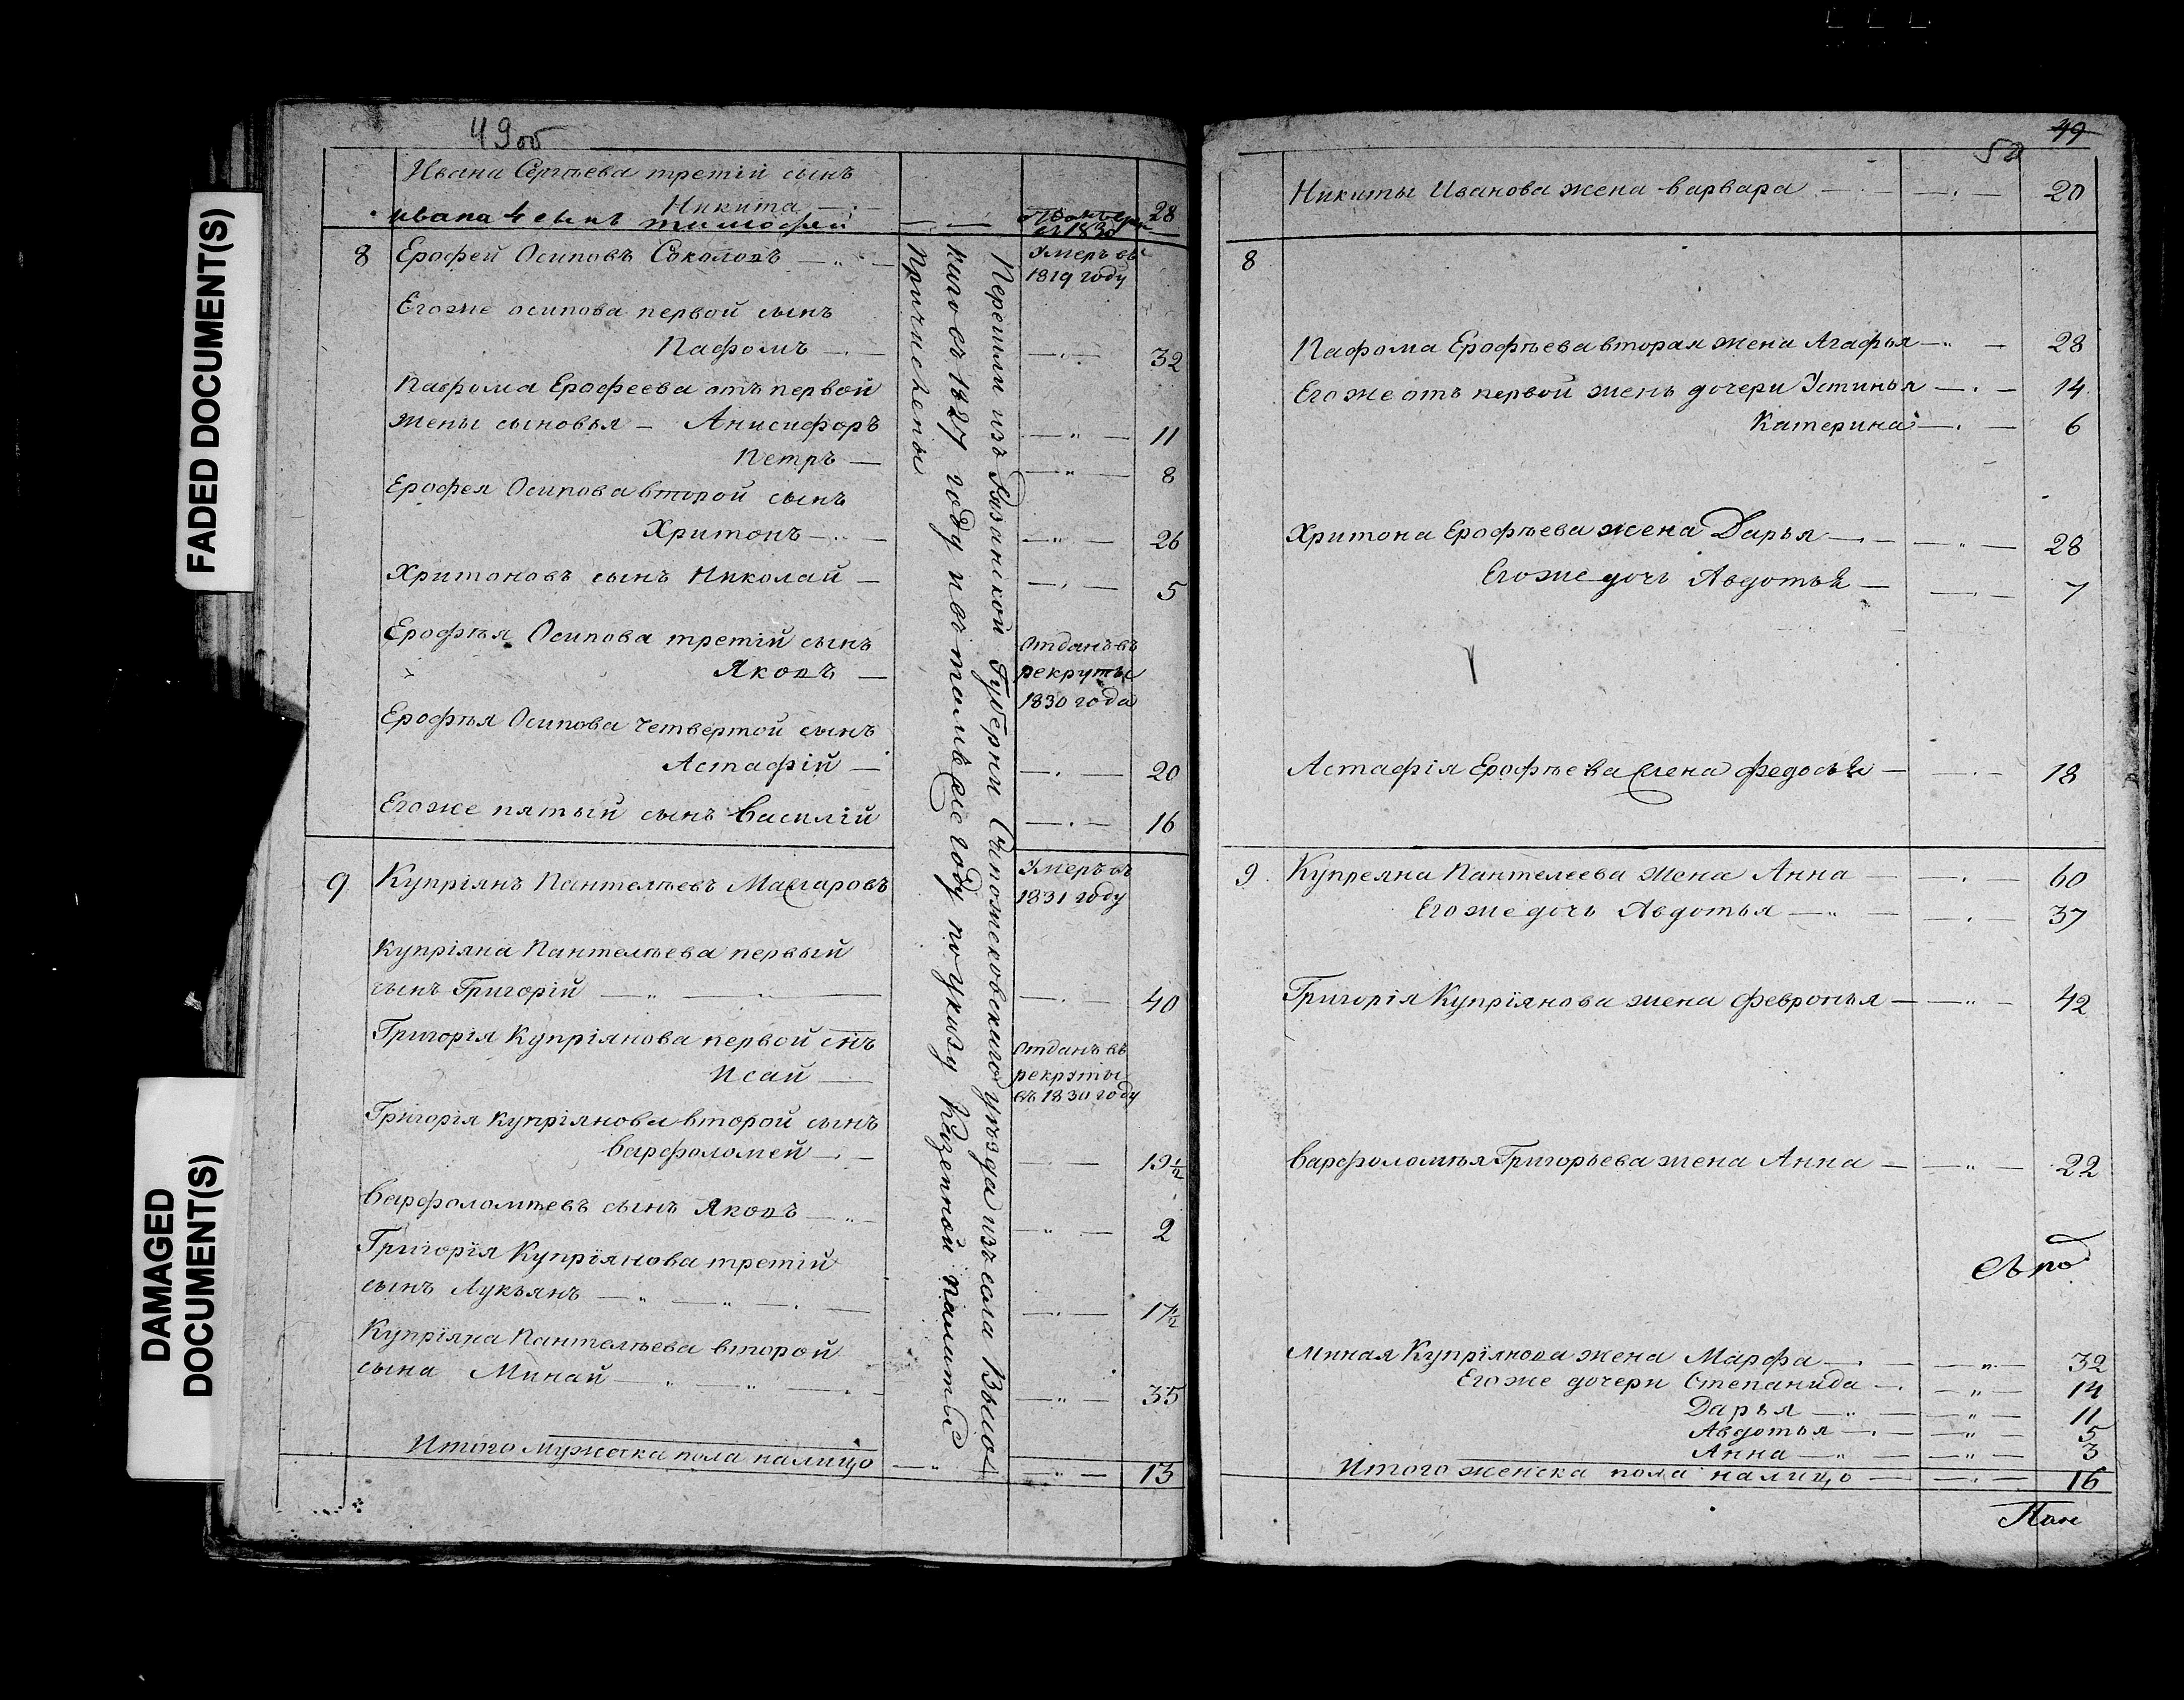 49об
Ивана Сергѣева третій сынъ
Никита — 28
ивана 4 сынъ тимофей
8 Ерофей Осиповъ Соколовъ — Умеръ въ
1819 году
Егоже осипова первой сынъ
Пафомъ — 32
Пафома Ерофеева отъ первой
жены сыновья — Анисифоръ — 11
Петръ — 8
Ерофея Осипова второй сынъ
Хритонъ — 26
Хритоновъ сынъ Николай — 5
Ерофѣя Осипова третій сынъ Отданъ въ
Яковъ — рекруты
1830 года
Ерофѣя Осипова четвертой сынъ
Астафій — 20
Егоже пятый сынъ Василій — 16
Перешли изъ Рязанской Губерни Сапожсковскаго уѣзда изъ села
кигов въ 1827 году и въ томъ же году по указу Казенной палаты
Причислены
9 Купріянъ Пантелѣевъ Макаровъ Умеръ въ
1831 году
Купріяна Пантелѣева первый
сынъ Григорій — 40
Григорія Купріянова первой снъ Отданъ въ
Исай — рекруты
въ 1830 году
Григорія Купріянова второй сынъ
Варфоломей — 19½
Варфоломѣевъ сынъ Яковъ — 2
Григорія Купріянова третій
сынъ Лукьянъ — 17½
Купріяна Пантелѣева второй
сына Минай — 35
Итого мужеска пола налицо — 13
49
50
Никиты Иванова жена варвара — 20
8
Пафома Ерофѣева вторая жена Агафья — 28
Егоже отъ первой жень дочери Устинья — 14
Катерина — 6
Хритона Ерофѣева жена Дарья — 28
Егоже дочь Авдотья — 7
Астафія Ерофѣева жена Федосья — 18
9 Купреяна Пантелеева жена Анна — 60
Егоже дочь Авдотья — 37
Григорія Купріянова жена февронья — 42
Варфоломѣя Григорьева жена Анна — 22
Миная Купріянова жена Марфа — 32
Егоже дочери Степанида — 14
Дарья — 11
Авдотья — 5
Анна — 3
Итого женска пола налицо — 16
FADED DOCUMENT(S)
DAMAGED
DOCUMENT(S)